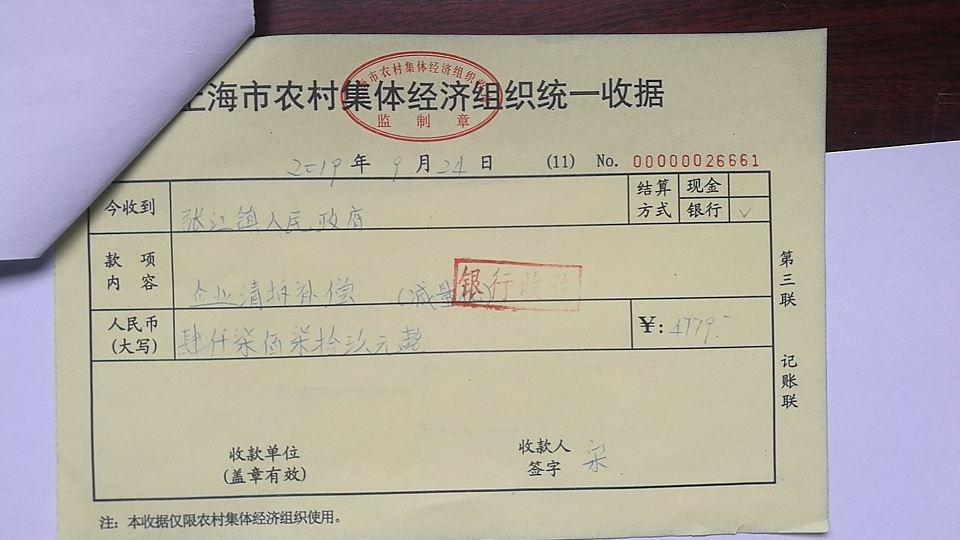 上海市农村集体经济组织统一收据
海市农村集体经济组织收
监制章
2019年9月24日 (11) No. 00000026661
今收到 张江镇人民政府
结算方式 现金
银行 ✓
款项内容 企业清拆补偿 (减量化)
银行收讫
人民币(大写) 肆仟柒佰柒拾玖元整 ¥:4779.-
第三联
记账联
收款单位 收款人
(盖章有效) 签字 宋
注:本收据仅限农村集体经济组织使用。